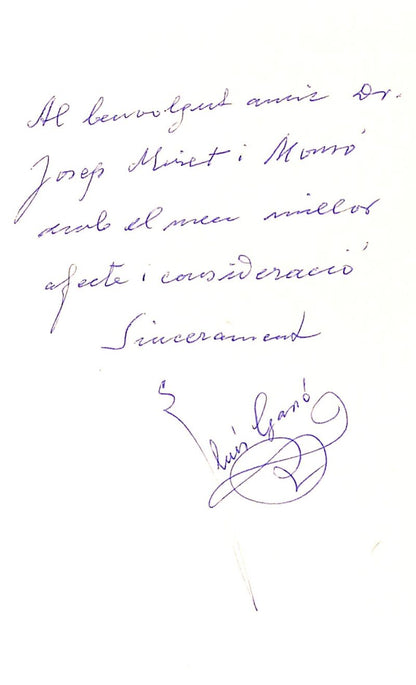 Al benvolgut amic Dr.
Josep Miret i Monsó
amb el meu millor
afecte i consideració
Sincerament
Lluís Gassó